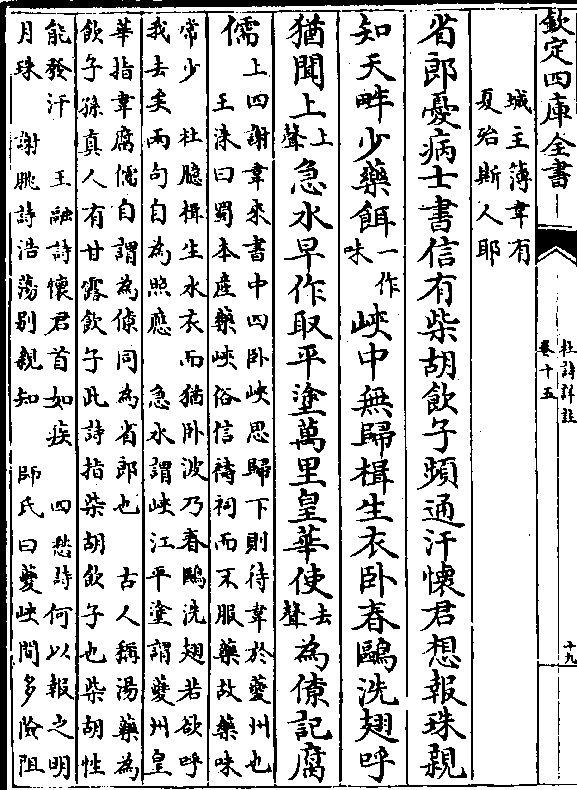 欽定四庫全書
杜詩詳註
卷十五
十九
城主簿韋有
夏殆斯人耶
省郎憂病士書信有柴胡飲子頻通汗懷君想報珠親
知天畔少藥餌一作味峽中無歸楫生衣卧春鷗洗翅呼
猶聞上上聲急水早作取平塗萬里皇華使去聲為僚記腐
儒
上四謝韋來書中四卧峽思歸下則待韋於夔州也
王洙曰蜀本產藥峽俗信禱祠而不服藥故藥味
常少 杜臆楫生水衣而猶卧波乃春鷗洗翅若欲呼
我去矣兩句自為照應 急水謂峽江平塗謂夔州皇
華指韋腐儒自謂為僚同為省郎也 古人稱湯藥為
飲子孫真人有甘露飲子此詩指柴胡飲子也柴胡性
能發汗 王融詩懷君首如疾 四愁詩何以報之明
月珠 謝朓詩浩蕩别親知 師氏曰夔峽間多險阻